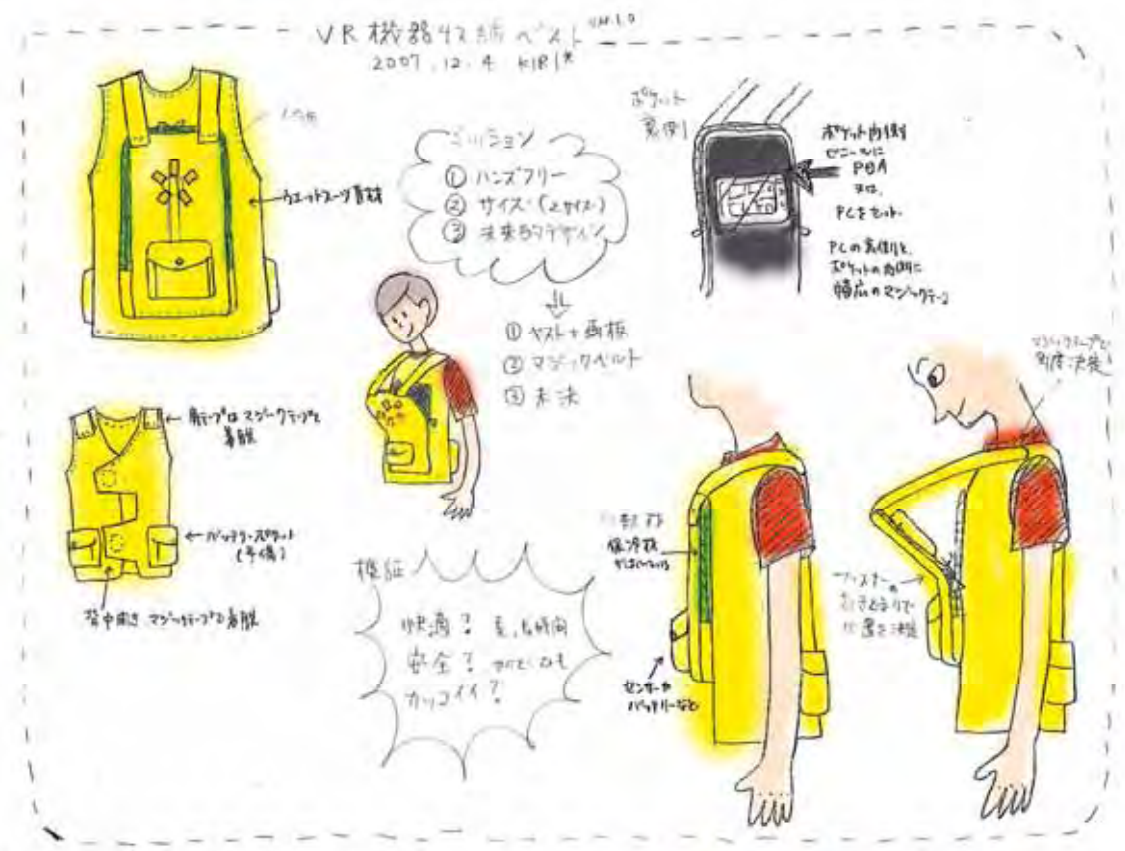 VR機器収納ベスト ver.1.0
2007.12.4 KIRI*
ウエットスーツ素材
ミッション
① ハンズフリー
② サイズ(2サイズ)
③ 未来的デザイン
① ベスト+画板
② マジックベルト
③ 未決
ポケット
裏側
ポケット内側
ビニールに
PDA
又は、
PCをセット。
PCの裏側と、
ポケットの内側に
幅広のマジックテープ
肩テープはマジックテープで
着脱
バッテリーポケット
(予備)
背中開き マジックテープで着脱
検証
快適? 夏、長時間
安全?
カッコイイ?
保冷材
センサーや
バッテリーなど
マジックテープで
角度決定
ファスナーの
開きどまりで
位置を決定